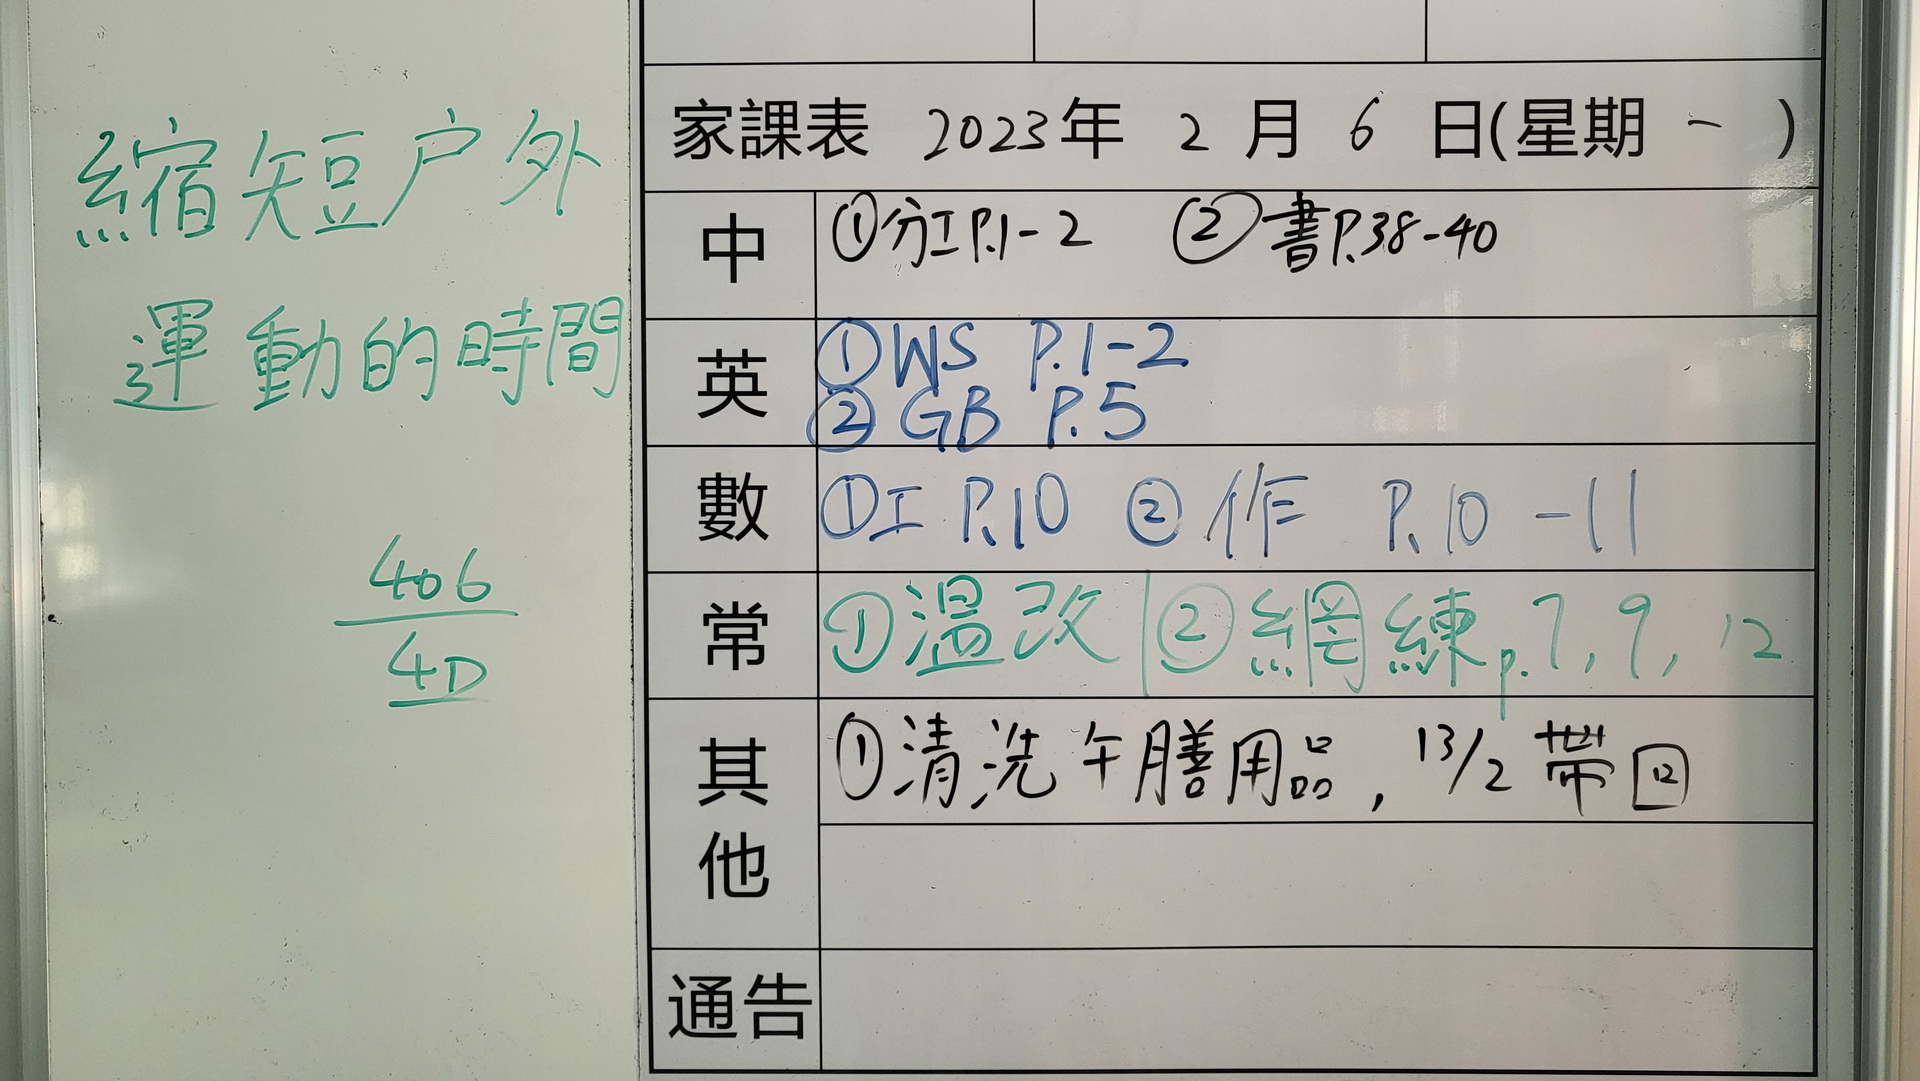 縮短户外
運動的時間
406
4D
家課表 2023年 2月 6日(星期一)
中 ①分工P.1-2 ②書P.38-40
英 ①WS P.1-2
②GB P.5
數 ①工 P.10 ②作 P.10-11
常 ①温改 ②網練p.7, 9, 12
其他 ①清洗午膳用品, 13/2 帶回
通告